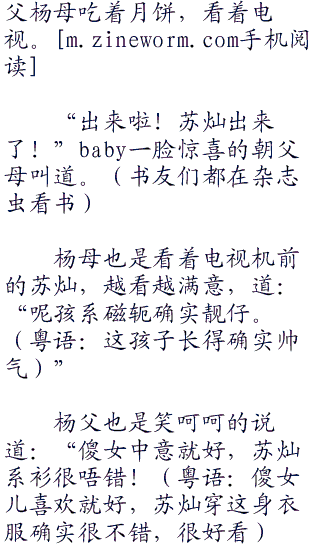 父杨母吃着月饼，看着电
视。[m.zineworm.com手机阅
读]
“出来啦！苏灿出来
了！”baby一脸惊喜的朝父
母叫道。（书友们都在杂志
虫看书）
杨母也是看着电视机前
的苏灿，越看越满意，道：
“呢孩系磁轭确实靓仔。
（粤语：这孩子长得确实帅
气）”
杨父也是笑呵呵的说
道：“傻女中意就好，苏灿
系衫很唔错！（粤语：傻女
儿喜欢就好，苏灿穿这身衣
服确实很不错，很好看）